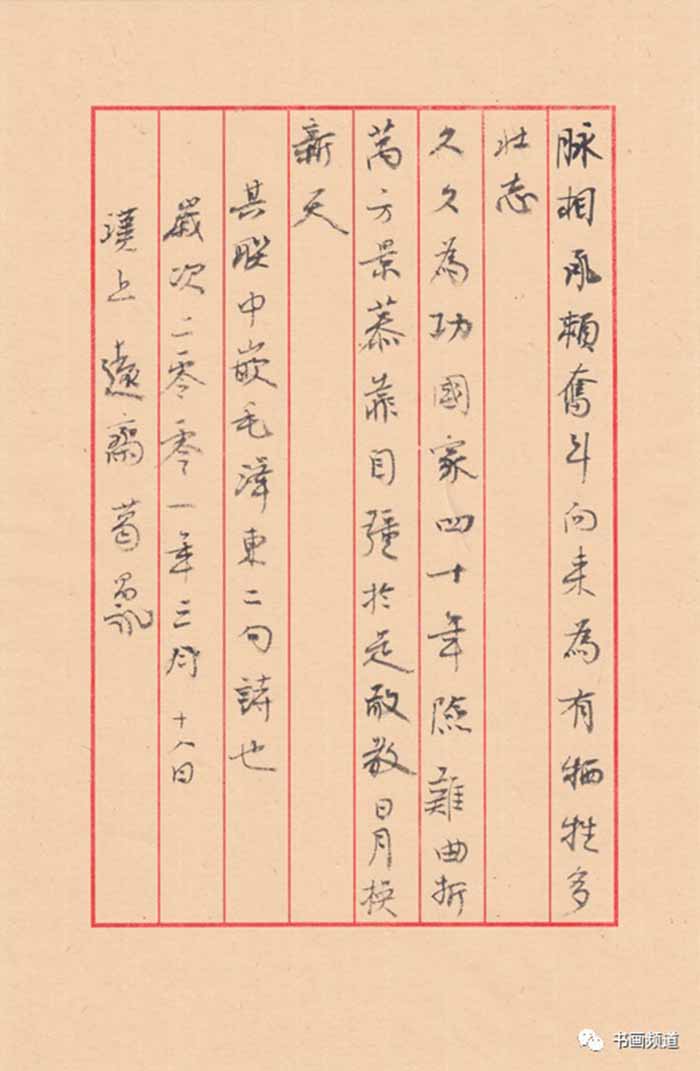 脉相承頼奮斗向来為有牺牲多
壮志
久久為功國家四十年險難曲折
萬方景慕龍目疆於是敢教日月换
新天
其联中嵌毛澤東二句詩也
歲次二零零一年三月十八日
漢上遠齋葛
书画频道